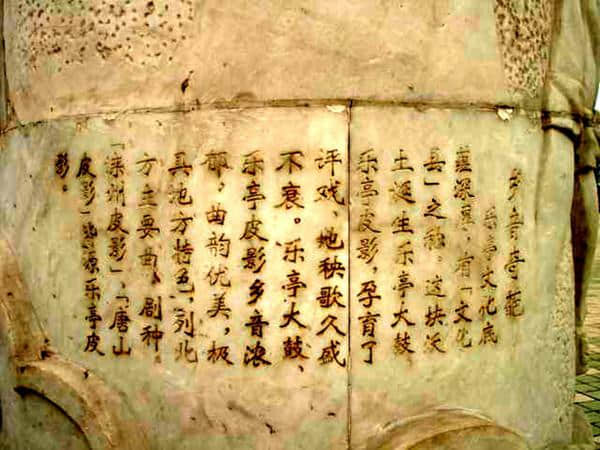 乡音奇葩
乐亭文化底
蕴深厚，有「文化
县」之称。这块沃
土诞生乐亭大鼓、
乐亭皮影，孕育了
评戏、地秧歌久盛
不衰。乐亭大鼓、
乐亭皮影乡音浓
郁，曲韵优美，极
具地方特色，列北
方主要曲、剧种，
「滦州皮影」、「唐山
皮影」皆源乐亭皮
影。